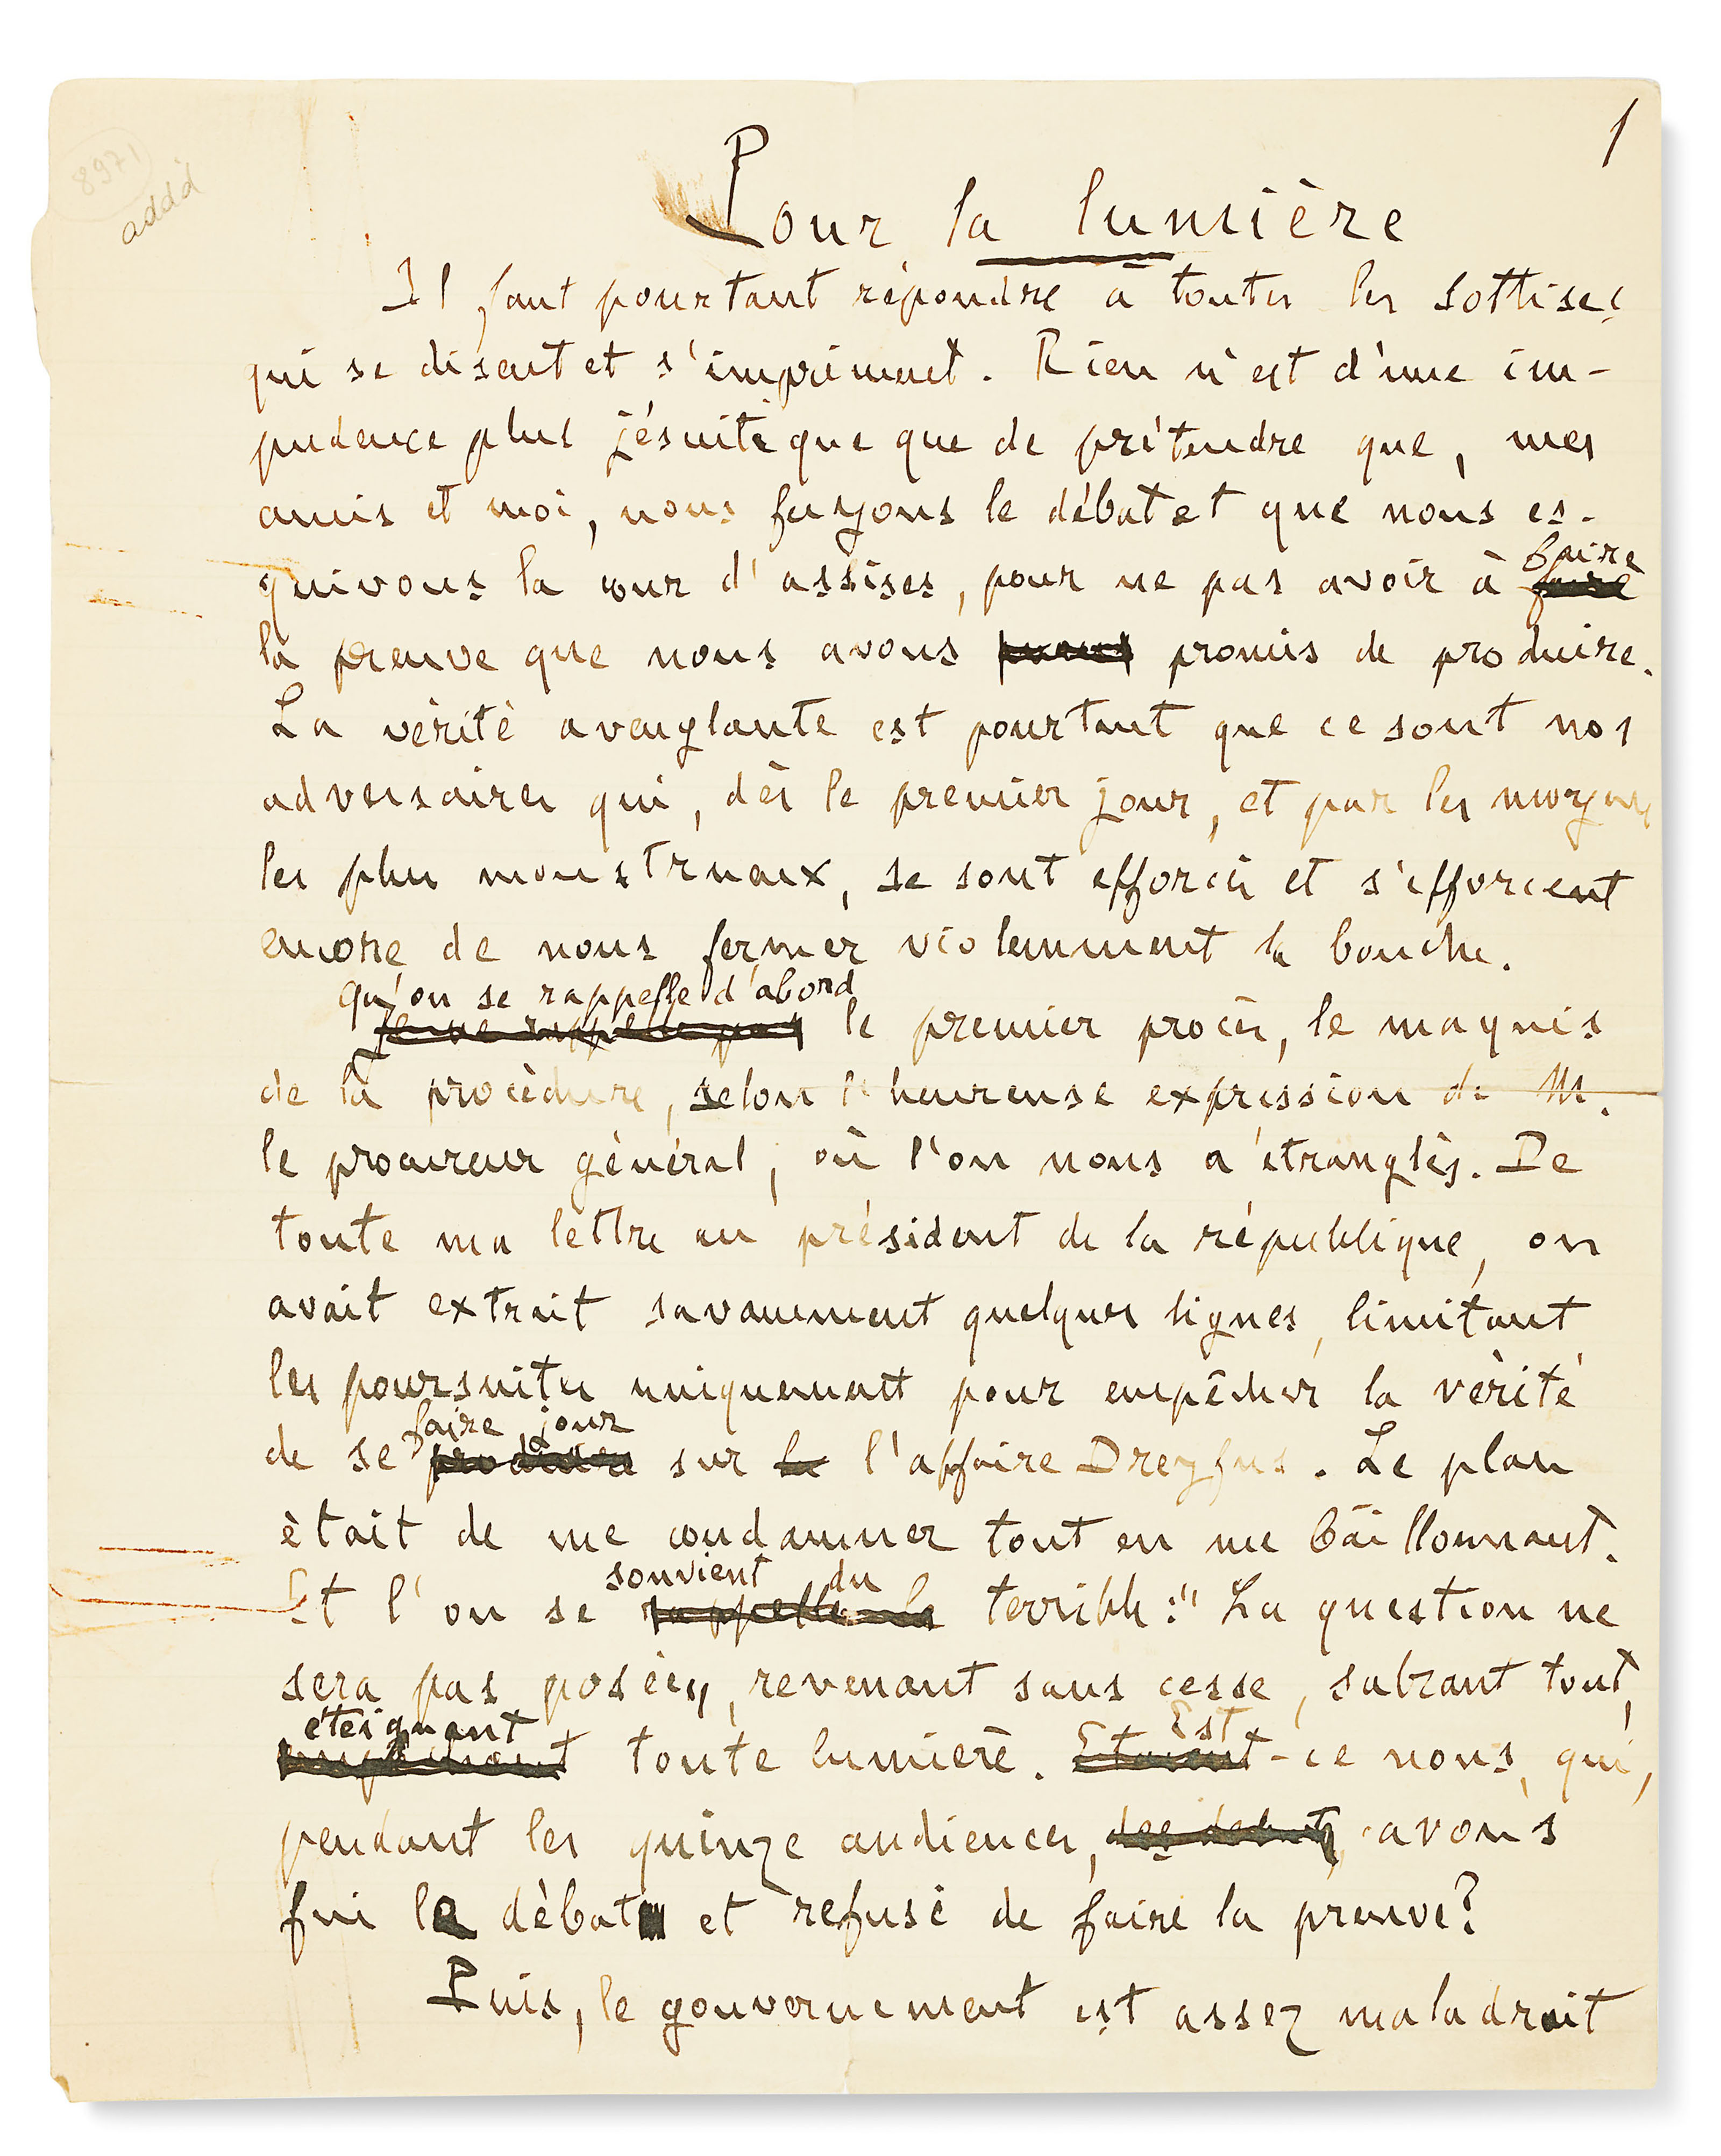 8971
addd
1
Pour la lumière
Il faut pourtant répondre à toutes les sottises
qui se disent et s'impriment. Rien n'est d'une im-
pudence plus jésuitique que de prétendre que, mes
amis et moi, nous fuyons le débat et que nous es-
quivons la cour d'assises, pour ne pas avoir à faire
la preuve que nous avons promis de produire.
La vérité aveuglante est pourtant que ce sont nos
adversaires qui, dès le premier jour, et par les moyens
les plus monstrueux, se sont efforcés et s'efforcent
encore de nous fermer violemment la bouche.
Qu'on se rappelle d'abord
le premier procès, le maquis
de la procédure, selon l'heureuse expression de M.
le procureur général, où l'on nous a étranglés. De
toute ma lettre au président de la république, on
avait extrait savamment quelques lignes, limitant
les poursuites uniquement pour empêcher la vérité
faire jour
de se sur le l'affaire Dreyfus. Le plan
était de me condamner tout en me bâillonnant.
souvient du
Et l'on se rappelle le terrible : " La question ne
sera pas posée", revenant sans cesse, sabrant tout,
éteignant
toute lumière. Est-ce nous, qui,
pendant les quinze audiences, avons
fui le débat et refusé de faire la preuve?
Puis, le gouvernement est assez maladroit